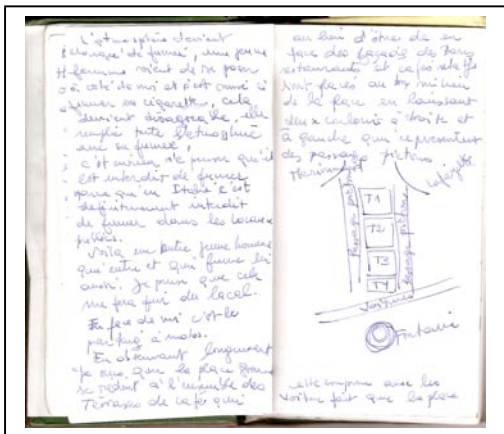 L'atmosphère devient
chargé de fumée, une jeune
femme vient de se poser
à coté de moi et s'est mise à
fumer sa cigarette, cela
devient désagreable, elle
remplie toute l'atmosphère
avec sa fumée,
c'est curieux de penser qu'il
est interdit de fumer
parce qu'en Italie c'est
definitivement interdit
de fumer dans les locaux
publics.
Voilà un autre jeune homme
qui entre et qui fume lui
aussi. Je pense que cela
me fera fuir du local.
En face de moi c'est le
parking à motos.
En observant longuement
je vois que la place
se réduit à l'ensemble des
Terrasses de cafés qui
au lieu d'être de en
face des façades des
restaurants et cafés
sont placés au milieu
de la place en laissant
deux couloirs à droite et
à gauche qui representent
des passages pietons
T1
T2
T3
T4
Passage pietons
Passage pietons
Voitures
Fontaine
cette coupure avec les
voitures fait que la place